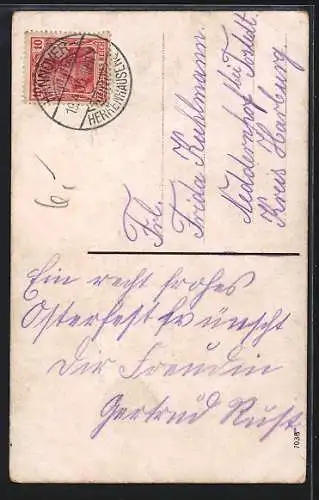 10
HANNOVER
HERRENHAUSEN
6,-
Frl.
Frida Kuhlmann
Neddernhof bei Tostedt.
Kreis Harburg
Ein recht frohes
Osterfest wünscht
Dir Freundin
Gertrud Rust.
7038